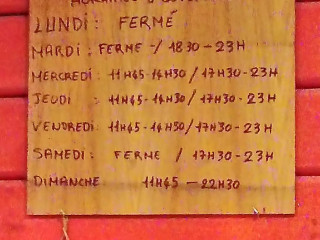 LUNDI: FERMÉ
MARDI: FERME -/ 1830-23H
MERCREDI: 11H45-14H30/17H30-23H
JEUDI : 11H45-14H30/17H30-23H
VENDREDI: 11H45-14H30/17H30-23H
SAMEDI: FERME / 17H30-23H
DIMANCHE 11H45 -22H30